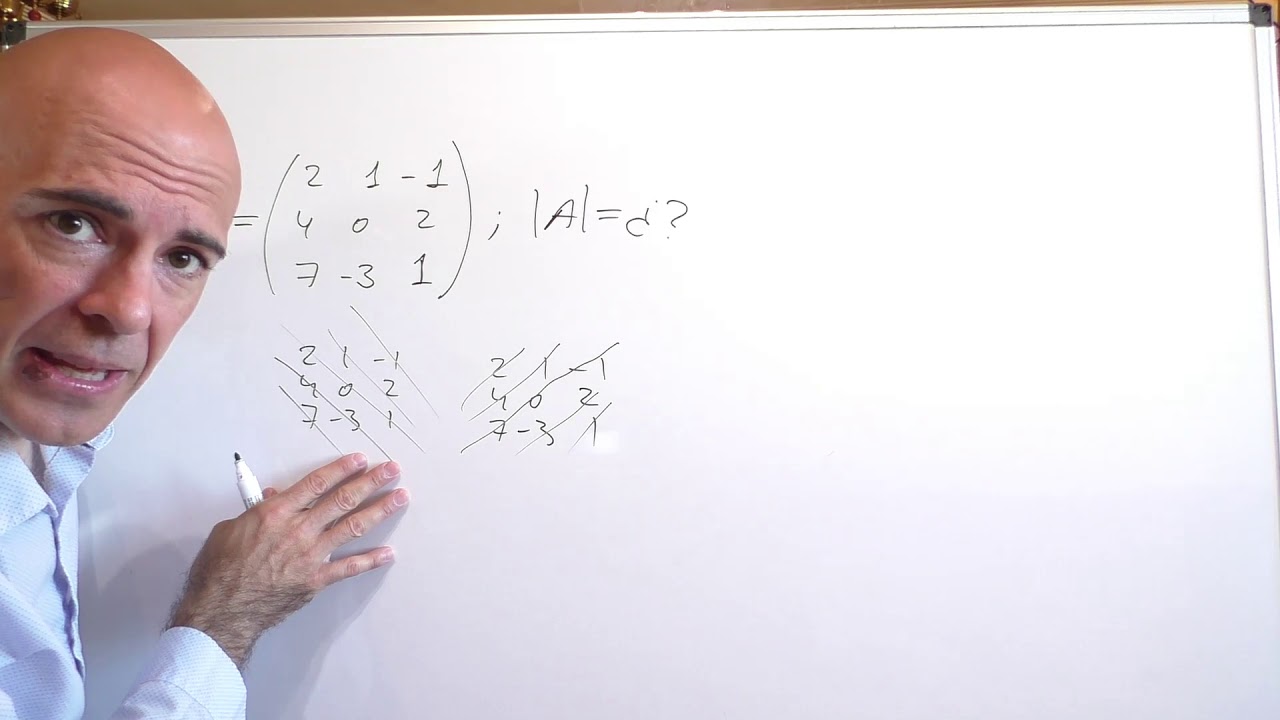 = ( 2 1 -1
4 0 2
7 -3 1 ) ; |A| = ¿?
2 1 -1
4 0 2
7 -3 1
2 1 -1
4 0 2
7 -3 1